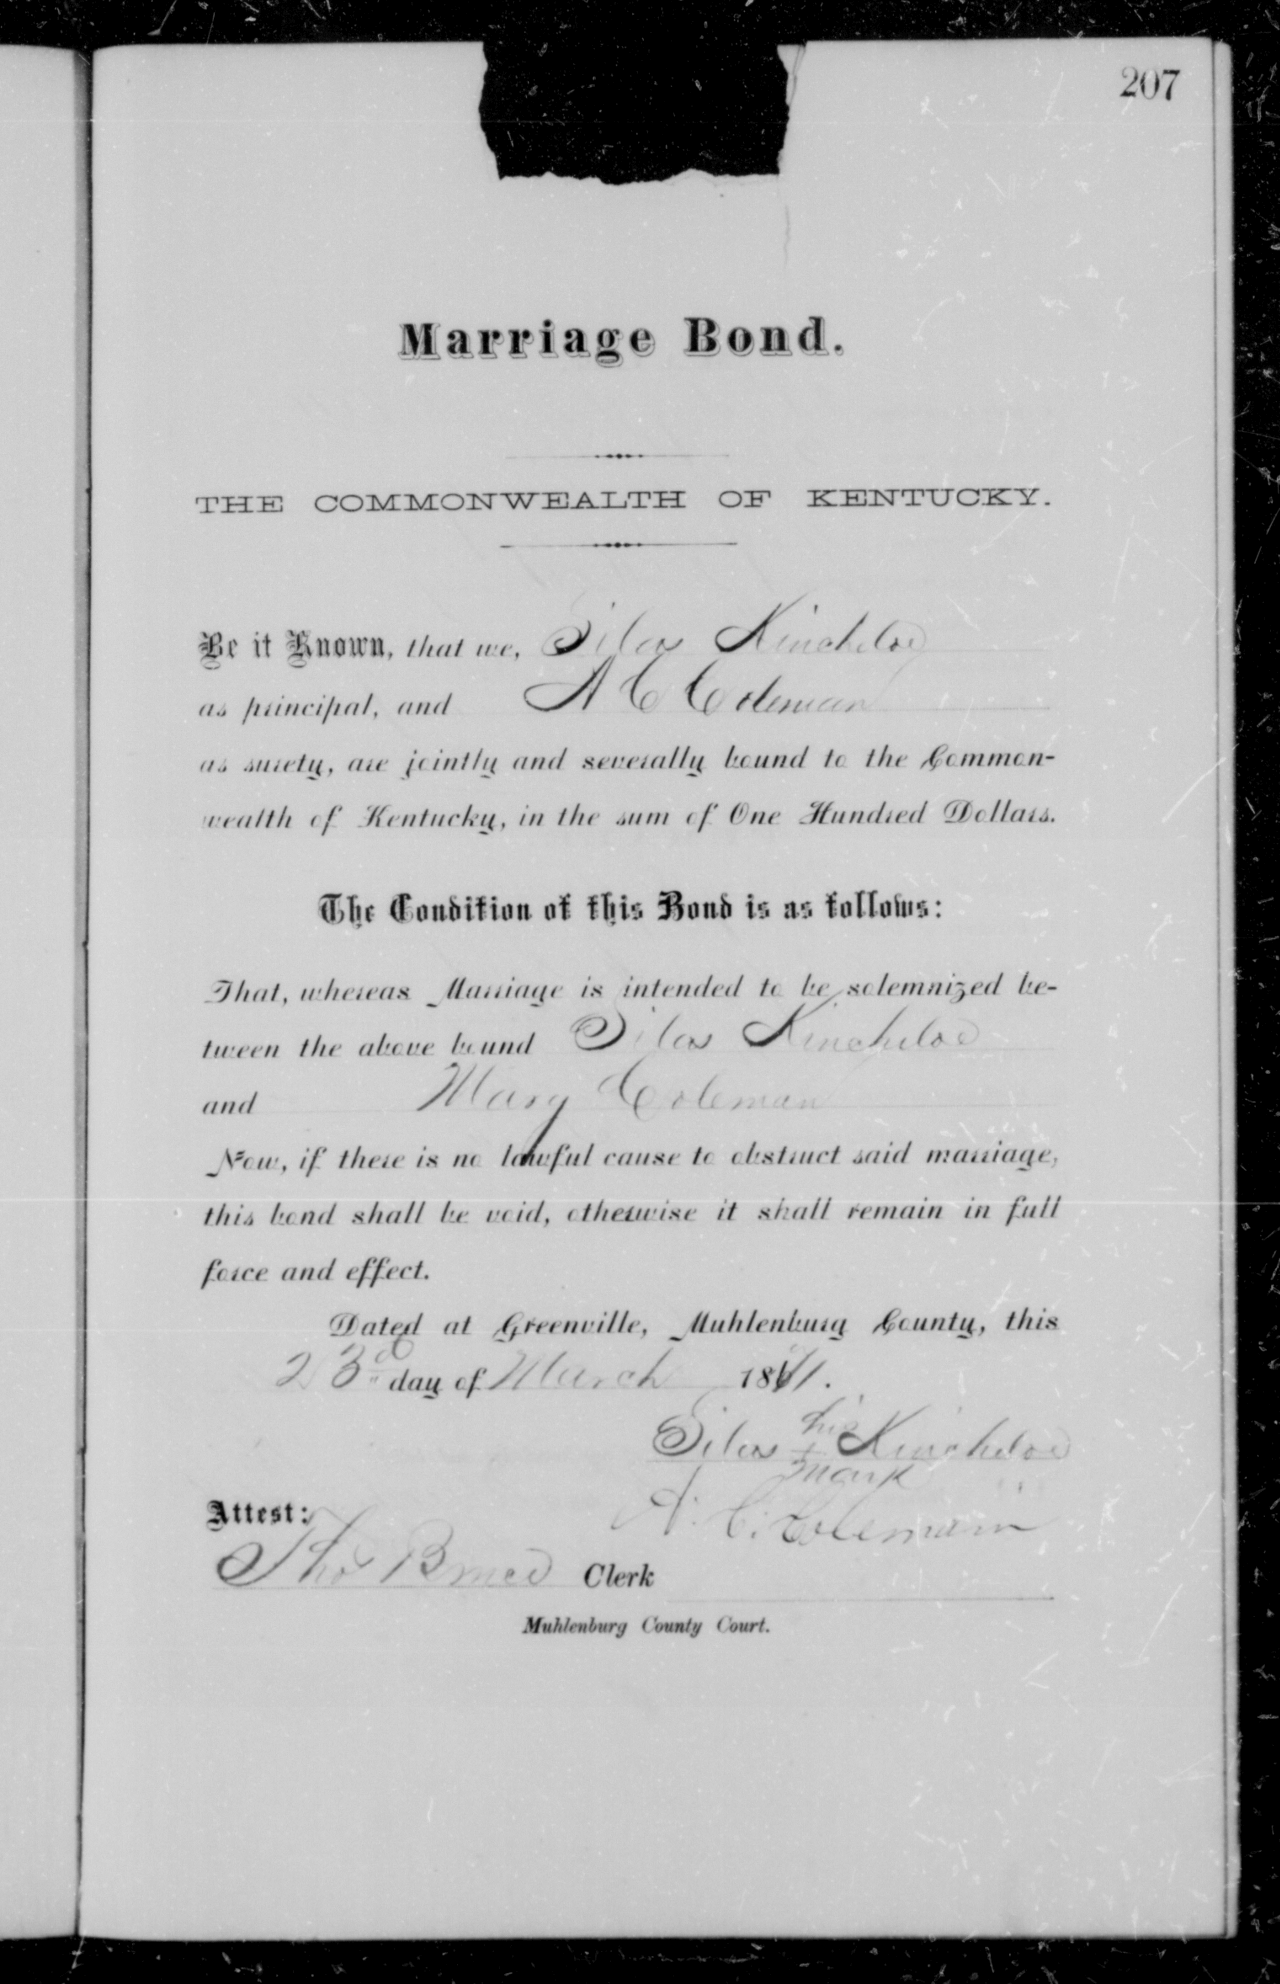 207
Marriage Bond.
THE COMMONWEALTH OF KENTUCKY.
Be it Known, that we, Silas Kincheloe
as principal, and A C Coleman
as surety, are jointly and severally bound to the Common-
wealth of Kentucky, in the sum of One Hundred Dollars.
The Condition of this Bond is as follows:
That, whereas Marriage is intended to be solemnized be-
tween the above bound Silas Kincheloe
and Mary Coleman
Now, if there is no lawful cause to obstruct said marriage,
this bond shall be void, otherwise it shall remain in full
force and effect.
Dated at Greenville, Muhlenburg County, this
23d day of March
his
Silas + Kincheloe
mark
A. C. Coleman
Attest:
Thos Clerk
Muhlenburg County Court.